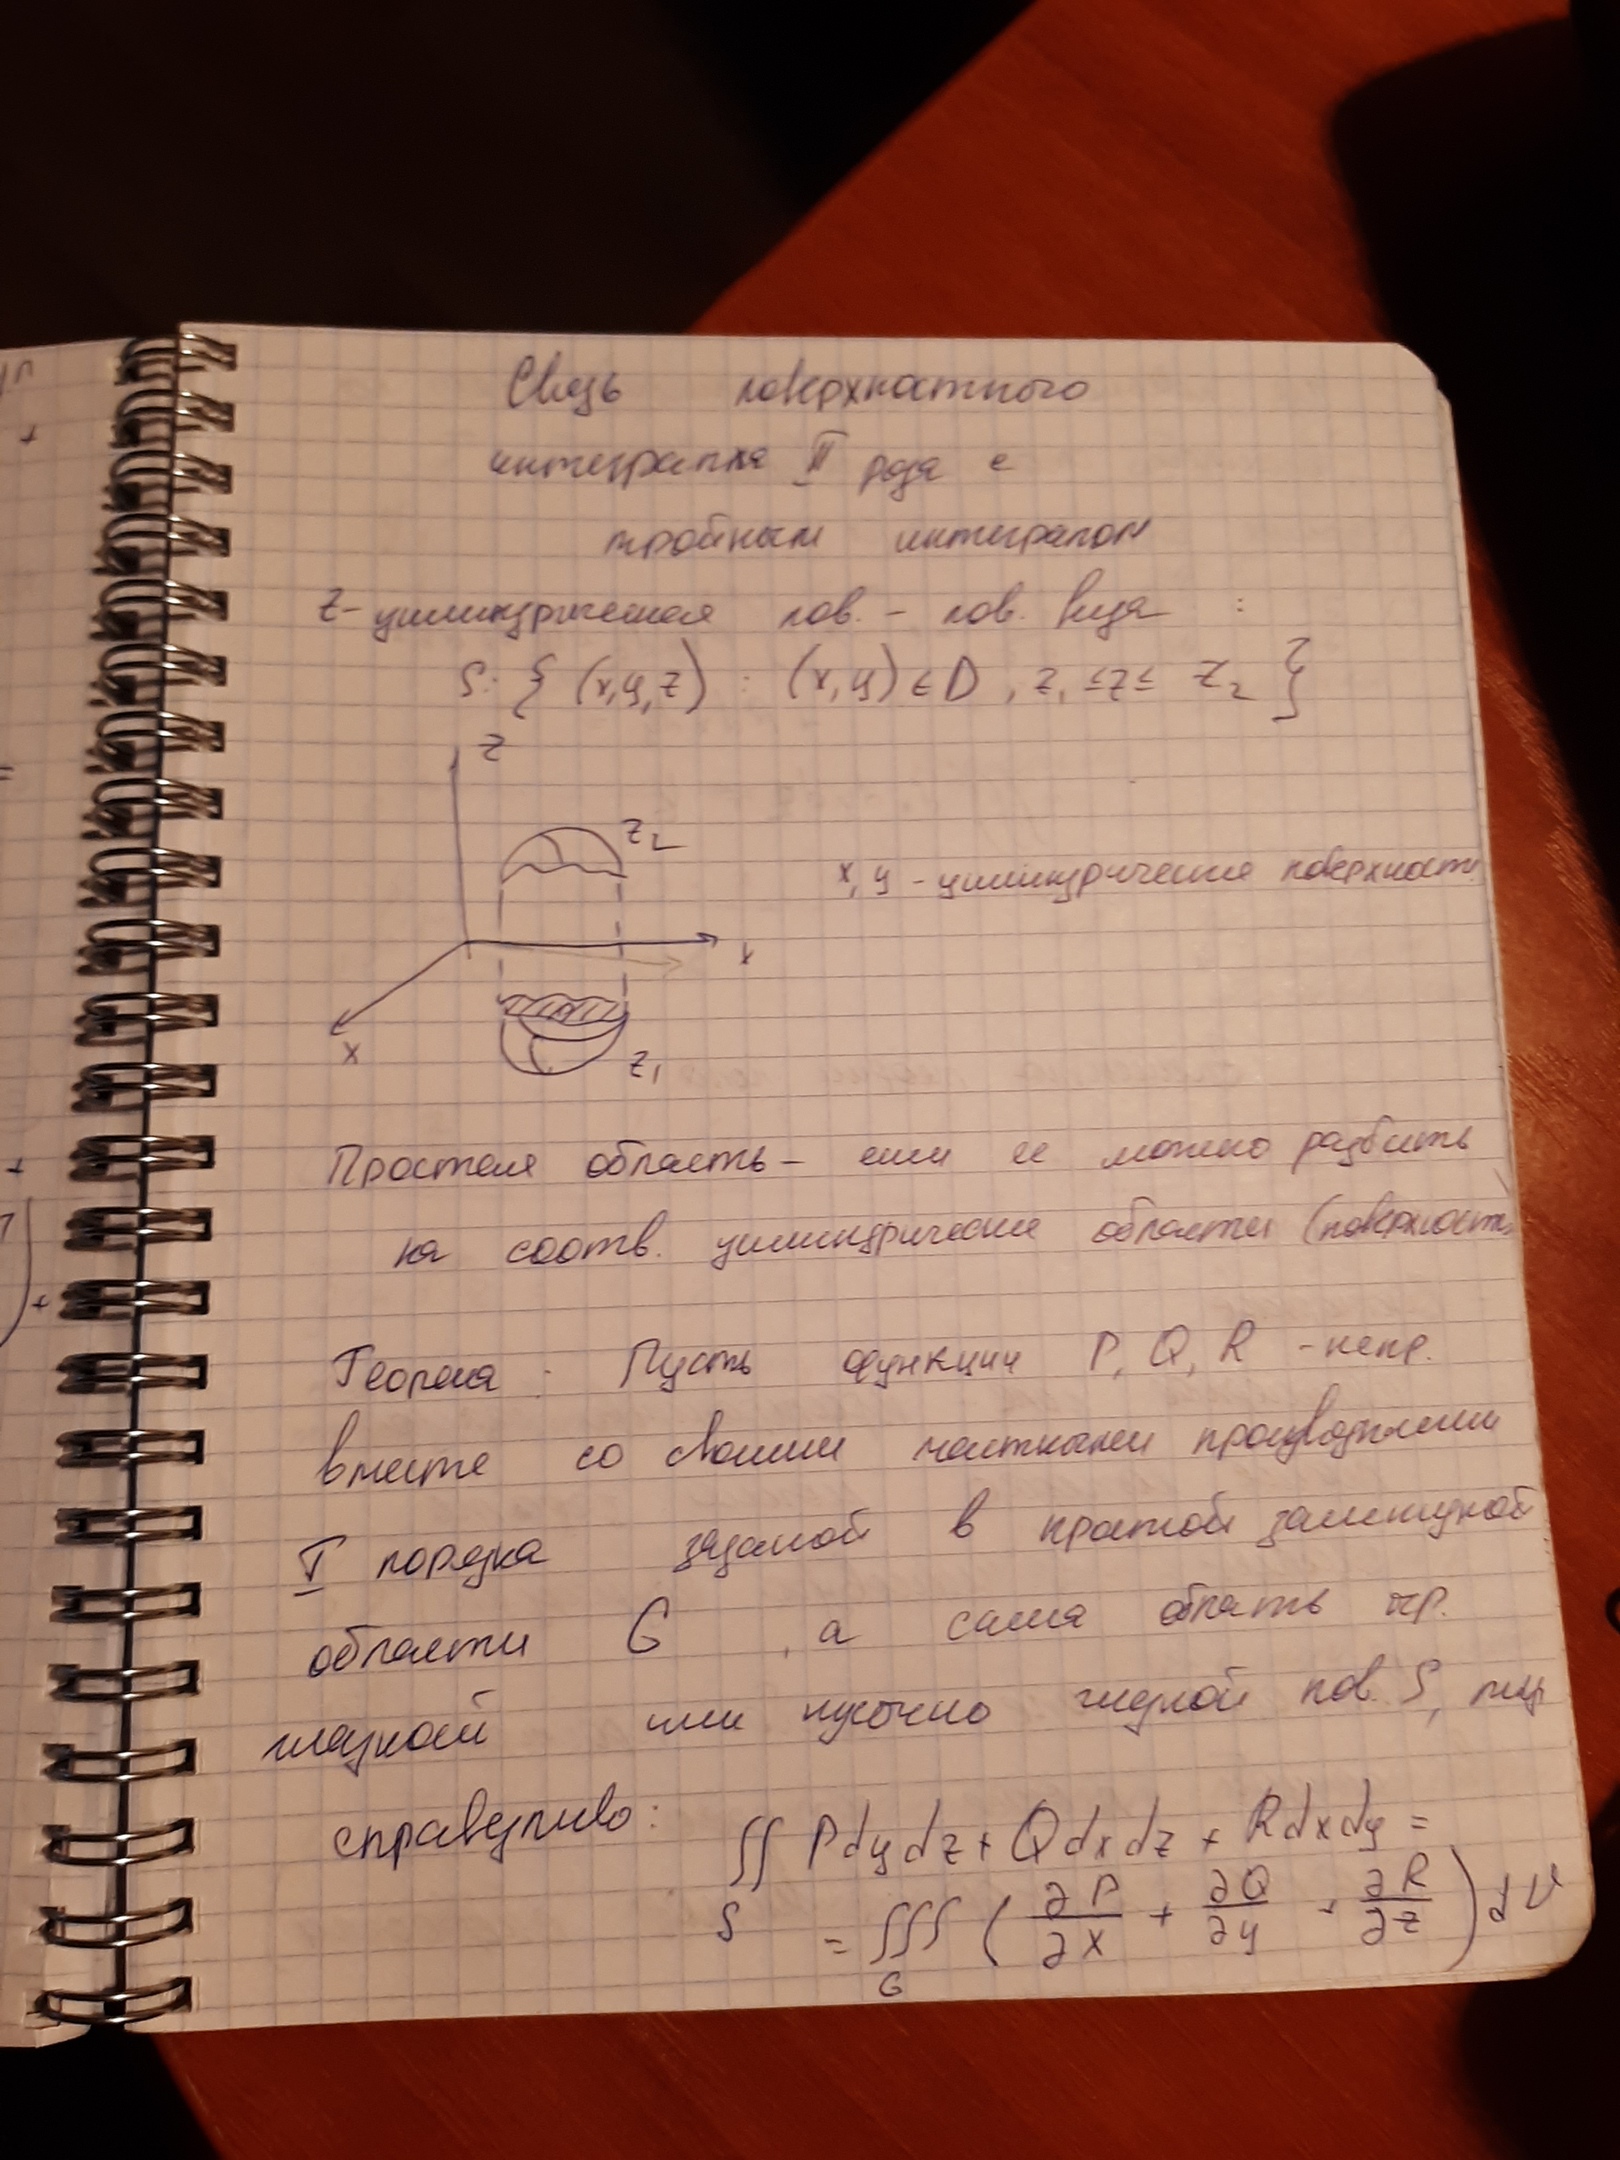 Связь поверхностного
интеграла II рода с
тройным интегралом
Z-цилиндрическая пов. - пов. вида :
S: { (x,y,z) : (x,y) ∈ D , z₁ ≤ z ≤ z₂ }
z
z₂
x, y - цилиндрические поверхност
x
z₁
Простая область - если ее можно разбить
на соотв. цилиндрические области (поверхност
Теорема : Пусть функции P, Q, R - непр.
вместе со своими частными производными
I порядка заданой в простой замкнутой
области G , а сама область огр.
гладкой или кусочно гладкой пов. S,
справедливо:
∬ P dy dz + Q dx dz + R dx dy =
S
= ∭ ( ∂P/∂x + ∂Q/∂y + ∂R/∂z ) dV
G